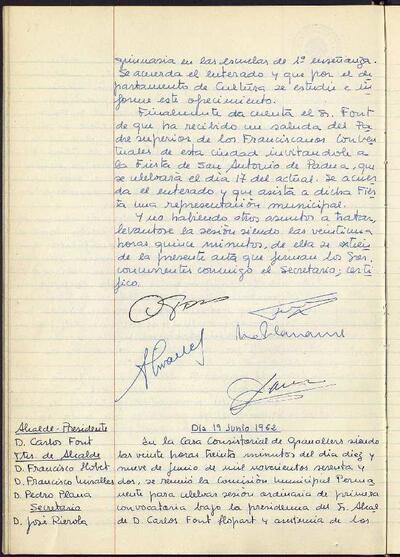 gimnasia en las escuelas de 1ª enseñanza.
Se acuerda el enterado y que por el de
partamento de Cultura se estudie e in
forme este ofrecimiento.
Finalmente da cuenta el Sr. Font
de que ha recibido un saluda del Pa
dre superior de los Franciscanos Conven
tuales de esta ciudad invitandole a
la Fiesta de San Antonio de Padua, que
se celebrará el dia 17 del actual. Se acuer
da el enterado y que asista a dicha Fies
ta una representación municipal.
Y no habiendo otros asuntos a tratar,
levantose la sesión siendo las veintiuna
horas quince minutos, de ella se extien
de la presente acta que firman los Sres.
concurrentes conmigo el Secretario; certi
fico.
Alcalde-Presidente
D. Carlos Font
Ttes. de Alcalde
D. Francisco Motet
D. Francisco Nuvalles
D. Pedro Plana
Secretario
D. José Rierola
Dia 19 Junio 1962
En la Casa Consistorial de Granollers siendo
las veinte horas treinta minutos del dia diez y
nueve de junio de mil novecientos sesenta y
dos, se reunió la Comisión Municipal Perma
nente para celebrar sesión ordinaria de primera
convocatoria bajo la presidencia del Sr. Alcal
de D. Carlos Font Llopart y asistencia de los